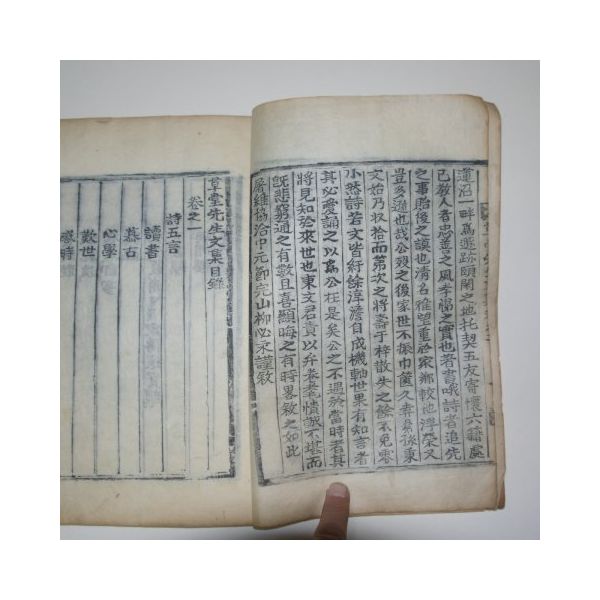 蓮沼一畔爲遯跡頤閑之地托契五友寄懷六籍處
已敎人者忠善之風孝悌之實也著書哦詩者追先
之事貽後之謨也淸名雅望重於家鄕較地浮榮又
豈多遜也哉公歿之後家世不振巾篋久秦爰孫東
文始乃收拾而第次之將壽于梓散失之餘不免零
小然詩若文皆紆餘淳澹自成機軸世果有知言者
其必愛誦之以爲公在是矣公之不遇於當時者其
將見知於來世也東文君責以弁卷辜情誠不堪而
旣悲窮通之有數且喜顯晦之有時畧敘之如此
屠維協洽中元節完山柳必永謹敘
草堂先生文集目錄
卷之一
詩五言
讀書
慕古
心學
歎世
感時